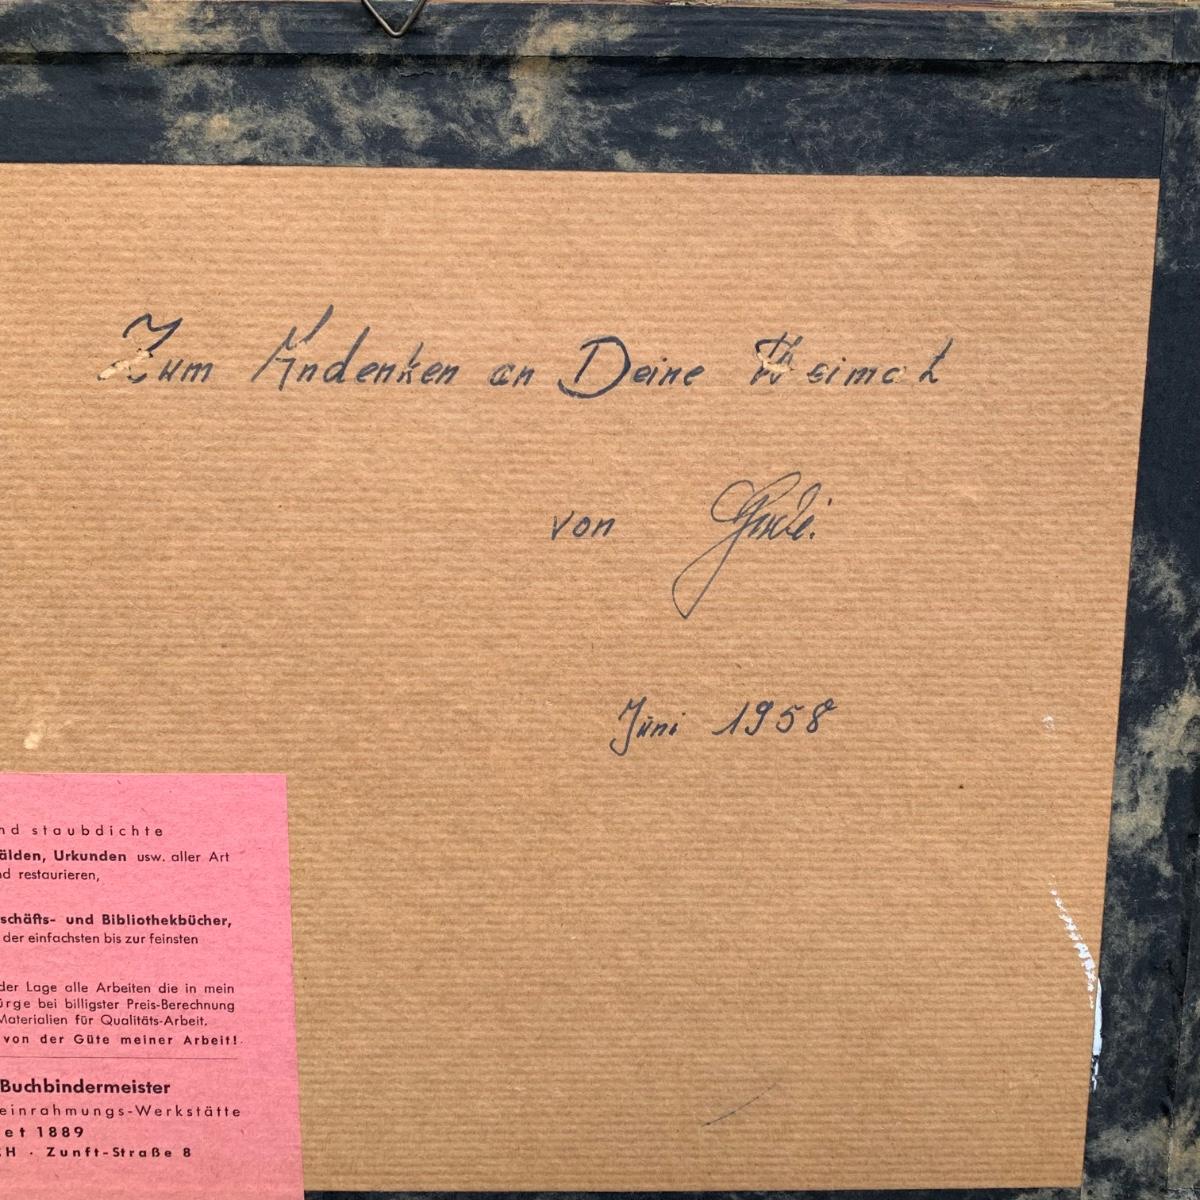 Zum Andenken an Deine Heimat
von
Juni 1958
nd staubdichte
älden, Urkunden usw. aller Art
nd restaurieren,
schäfts- und Bibliothekbücher,
der einfachsten bis zur feinsten
der Lage alle Arbeiten die in mein
ürge bei billigster Preis-Berechnung
Materialien für Qualitäts-Arbeit.
von der Güte meiner Arbeit!
Buchbindermeister
einrahmungs-Werkstätte
et 1889
H · Zunft-Straße 8